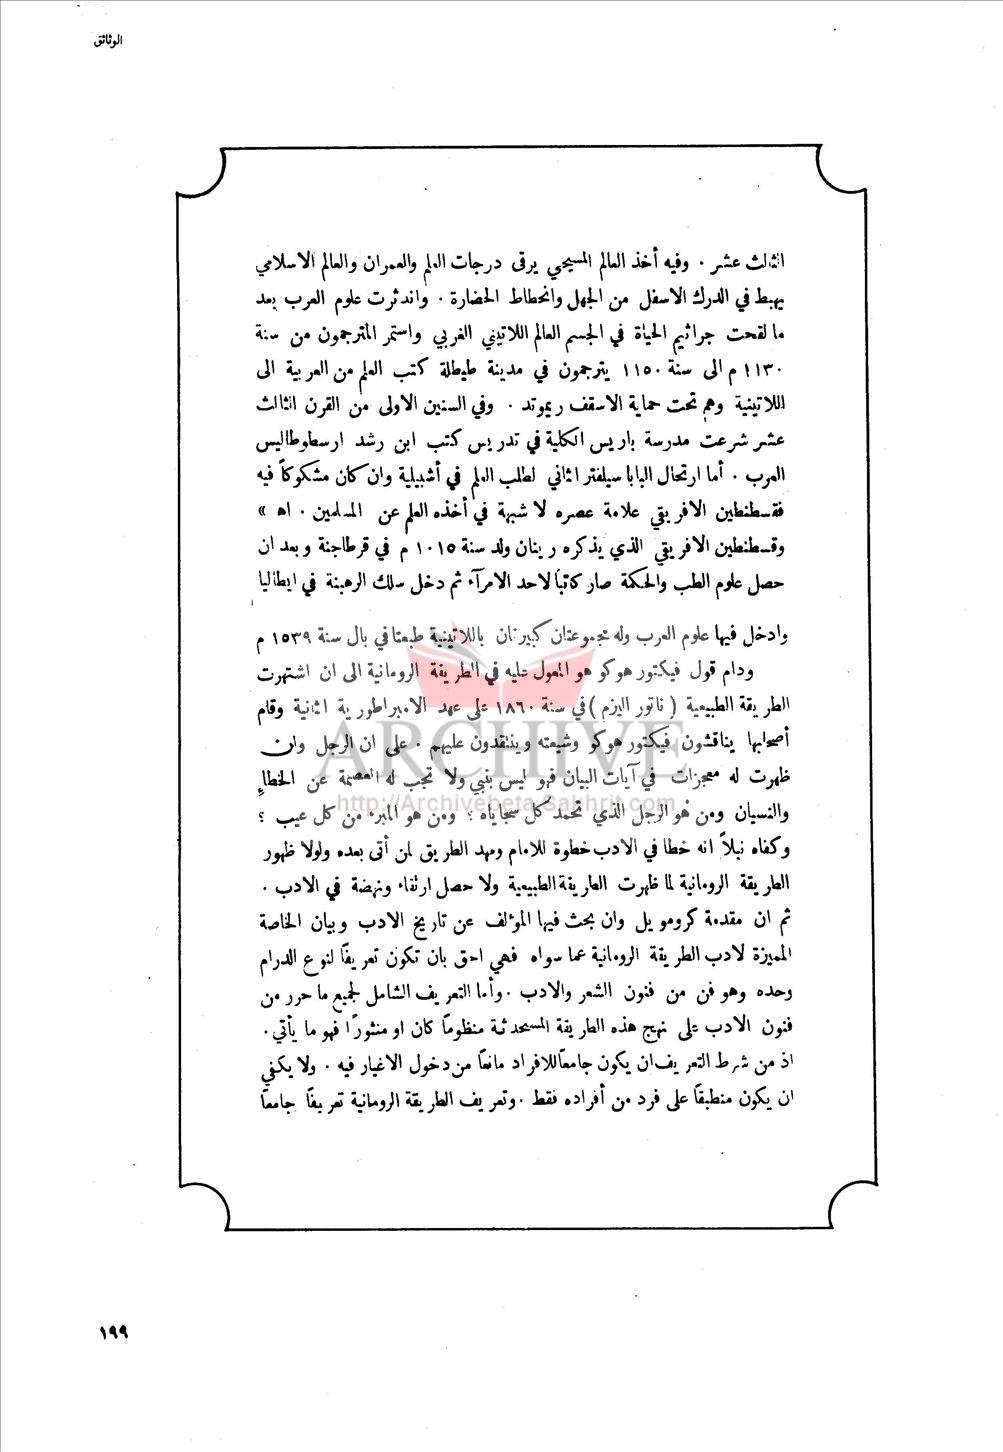 الوثائق
الثالث عشر ٠ وفيه أخذ العالم المسيحي يرقى درجات العلم والعمران والعالم الاسلامي
يهبط في الدرك الاسفل من الجهل وانحطاط الحضارة ٠ واندثرت علوم العرب بعد
ما لقحت جراثيم الحياة في الجسم العالم اللاتيني الغربي واستمر المترجمون من سنة
١١٣٠ م الى سنة ١١٥٠ يترجمون في مدينة طيطلة كتب العلم من العربية الى
اللاتينية وهم تحت حماية الاسقف ريموند ٠ وفي السنين الاولى من القرن الثالث
عشر شرعت مدرسة باريس الكلية في تدريس كتب ابن رشد ارسطوطاليس
العرب ٠ أما ارتحال البابا سيلفتر الثاني لطلب العلم في أشبيلية وان كان مشكوكاً فيه
فقسطنطين الافريقي علامة عصره لا شبهة في أخذه العلم عن المسلمين ٠ اه »
وقسطنطين الافريقي الذي يذكره رينان ولد سنة ١٠١٥ م في قرطاجنة وبعد ان
حصل علوم الطب والحكمة صار كاتباً لاحد الامرآء ثم دخل سلك الرهبنة في ايطاليا
وادخل فيها علوم العرب وله مجموعتان كبيرتان باللاتينية طبعتا في بال سنة ١٥٣٩ م
ودام قول فيكتور هوكو هو المعول عليه في الطريقة الرومانية الى ان اشتهرت
الطريقة الطبيعية ( ناتور اليزم ) في سنة ١٨٦٠ على عهد الامبراطورية الثانية وقام
أصحابها يناقشون فيكتور هوكو وشيعته وينتقدون عليهم ٠ على ان الرجل وان
ظهرت له معجزات في آيات البيان فهو ليس بنبي ولا تجب له العصمة عن الخطاءِ
والنسيان ومن هُو الرجل الذي تحمد كل سجاياه ؟ ومن هو المبرء من كل عيب ؟
وكفاه نبلاً انه خطا في الادب خطوة للامام ومهد الطريق لمن أتى بعده ولولا ظهور
الطريقة الرومانية لما ظهرت الطريقة الطبيعية ولا حصل ارتقاء ونهضة في الادب ٠
ثم ان مقدمة كرومويل وان بحث فيها المؤلف عن تاريخ الادب وبيان الخاصة
المميزة لادب الطريقة الرومانية عما سواه فهي احق بان تكون تعريفًا لنوع الدرام
وحده وهو فن من فنون الشعر والادب ٠ وأما التعريف الشامل لجميع ما حرر من
فنون الادب على نهج هذه الطريقة المستحدثة منظومًا كان او منثورًا فهو ما يأتي ٠
اذ من شرط التعريف ان يكون جامعًا للافراد مانعًا من دخول الاغيار فيه ٠ ولا يكفي
ان يكون منطبقًا على فرد من أفراده فقط ٠ وتعريف الطريقة الرومانية تعريفًا جامعًا
ARCHIVE
http://Archivebeta.Sakhrit.com
١٩٩